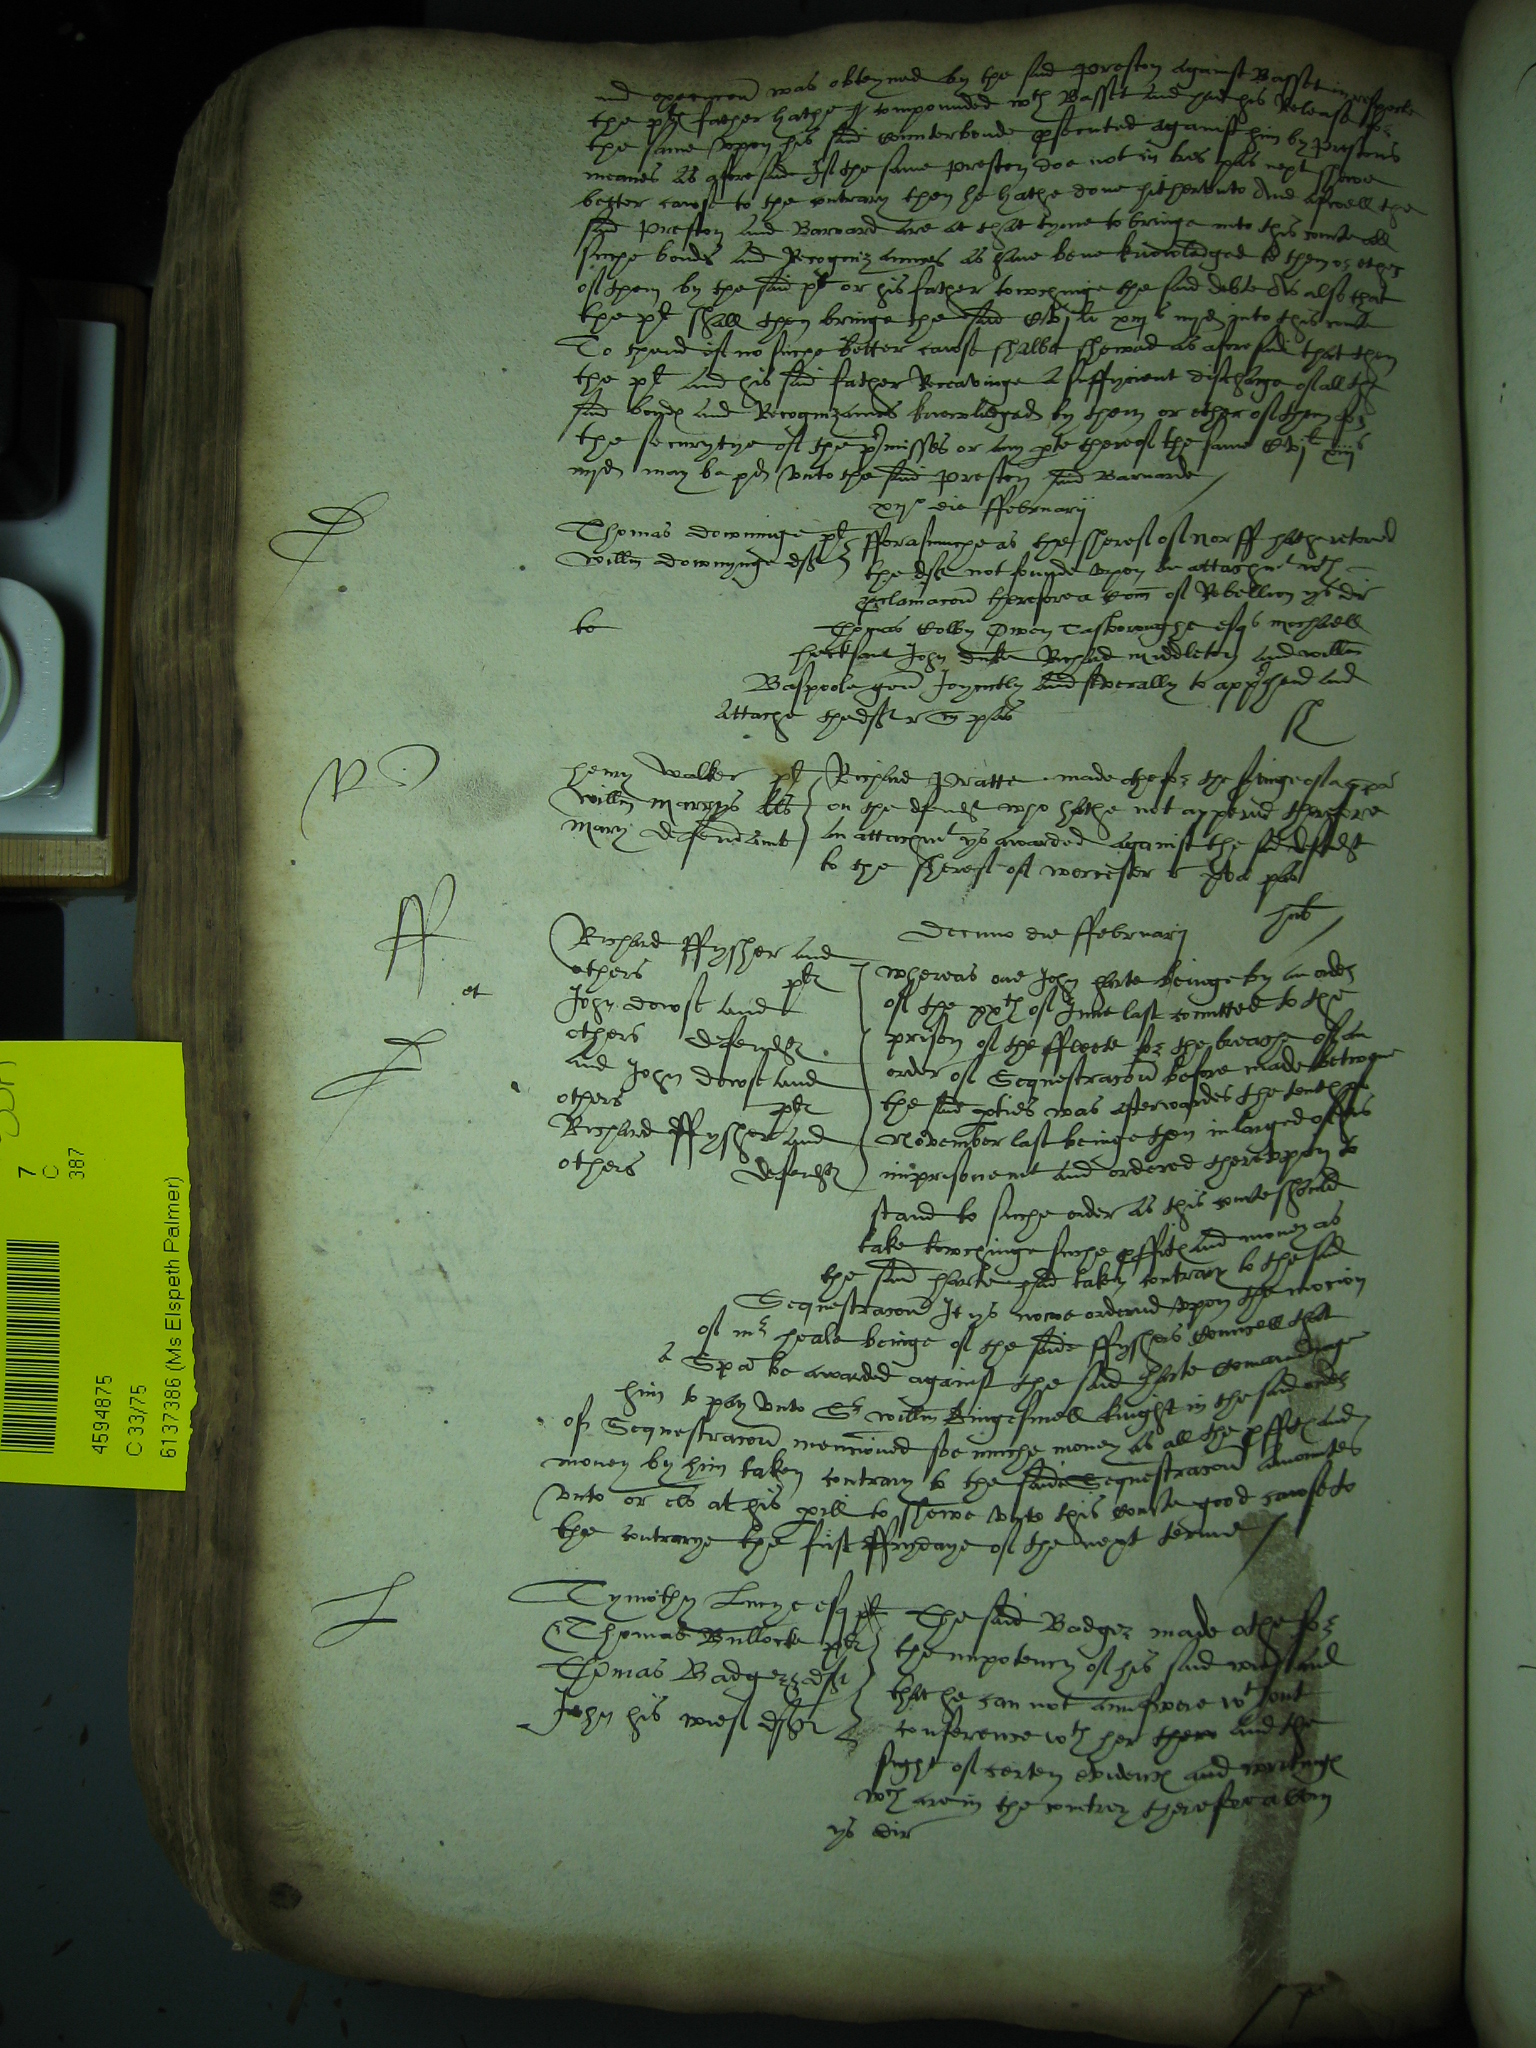 and execucon was obteyned by the said Preston against Basset in respecte
the plt father hathe compounded wth Basset and had his Release for
the same vpon his said Counterbonde psecuted against him by Prestons
meanes as aforesaid If the same Preston doe not in tres pas next shewe
better cawse to the contrary then he hathe done hithervnto And aswell the
said Preston and Barnard are at that tyme to bringe into this courte all
suche bonds and Recognizaunces as have bene knowledged to them or ether
of them by the said plt or his father towchinge the said debte As also that
the plt shall then bringe the said xiijs iiijd into this courte
To thend if no suche better cawse shalbe shewed as aforesaid that then
the plt and his said father Receavinge A suffycient discharge of all the
said bonds and Recognizaunces knowledged by them or ether of them for
the securytye of the pmisses or any pte thereof the same xiijs
iiijd may be pd vnto the said Preston and Barnarde
xijo die ffebruarij
Thomas Downinge plt fforasmuche as the Sheref of Norff hath retorned
Willm Downynge deft the deft not founde vpon an attachmt wth
pclamacon therefore a Com of Rebellion ys dir
to Thomas Colby Owen Tasboroughe esqs Michaell
John Duke Richard Middleton and Willm
Baspoole gen Joyntly and severally to apphend and
Attache the deft
Henry Walker plt Richard Pratte made othe for the s'vinge of a spa
Willm Marrys als on the defendt who hathe not appered therefore
Mary defendaunt an attachmt ys awarded against the sd defendt
to the Sheref of Worcester
Decimo die ffebruarij
Richard ffyssher and
others plts
John Dowse and
others defendts
and John Dowse and
others plts
Richard ffyssher and
others defendts
whereas one John Harte beinge by an order
of the xxth of June last comitted to the
prison of the ffleete for the breache of an
order of Sequestracon before made betwene
the said pties was afterwardes the tenth of
November last beinge then inlarged of his
imprisonemt and ordered therevpon to
stand to suche order as this courte should
take towchinge suche pffitts and money as
the said Harte had taken contrary to the said
Sequestracon It ys nowe ordered vpon the mocion
of mr Heale beinge of the saide ffysshers Councell that
a Spa be awarded against the said Harte Comaundinge
him to pay vnto Sr Willm Kingesmell knight in the said order
of Sequestracon mencioned soe muche money as all the pffitts and
money by him taken contrary to the saide Sequestracon amountes
vnto or els at his pill to shewe vnto this courte good cawse to
the contrarye the first ffrydaye of the next terme
Tymothy Lucye esq plt The said Badger made othe for
Thomas Bullocke plt the impotency of his said wief and
Thomas Badger deft that he can not annswere wthout
his wief deft conference wth her and the
sight of certen evidences and writings
wch are in the contrey therefore a Com
ys dir
et
7
C
387
4594875
C 33/75
6137386 (Ms Elspeth Palmer)